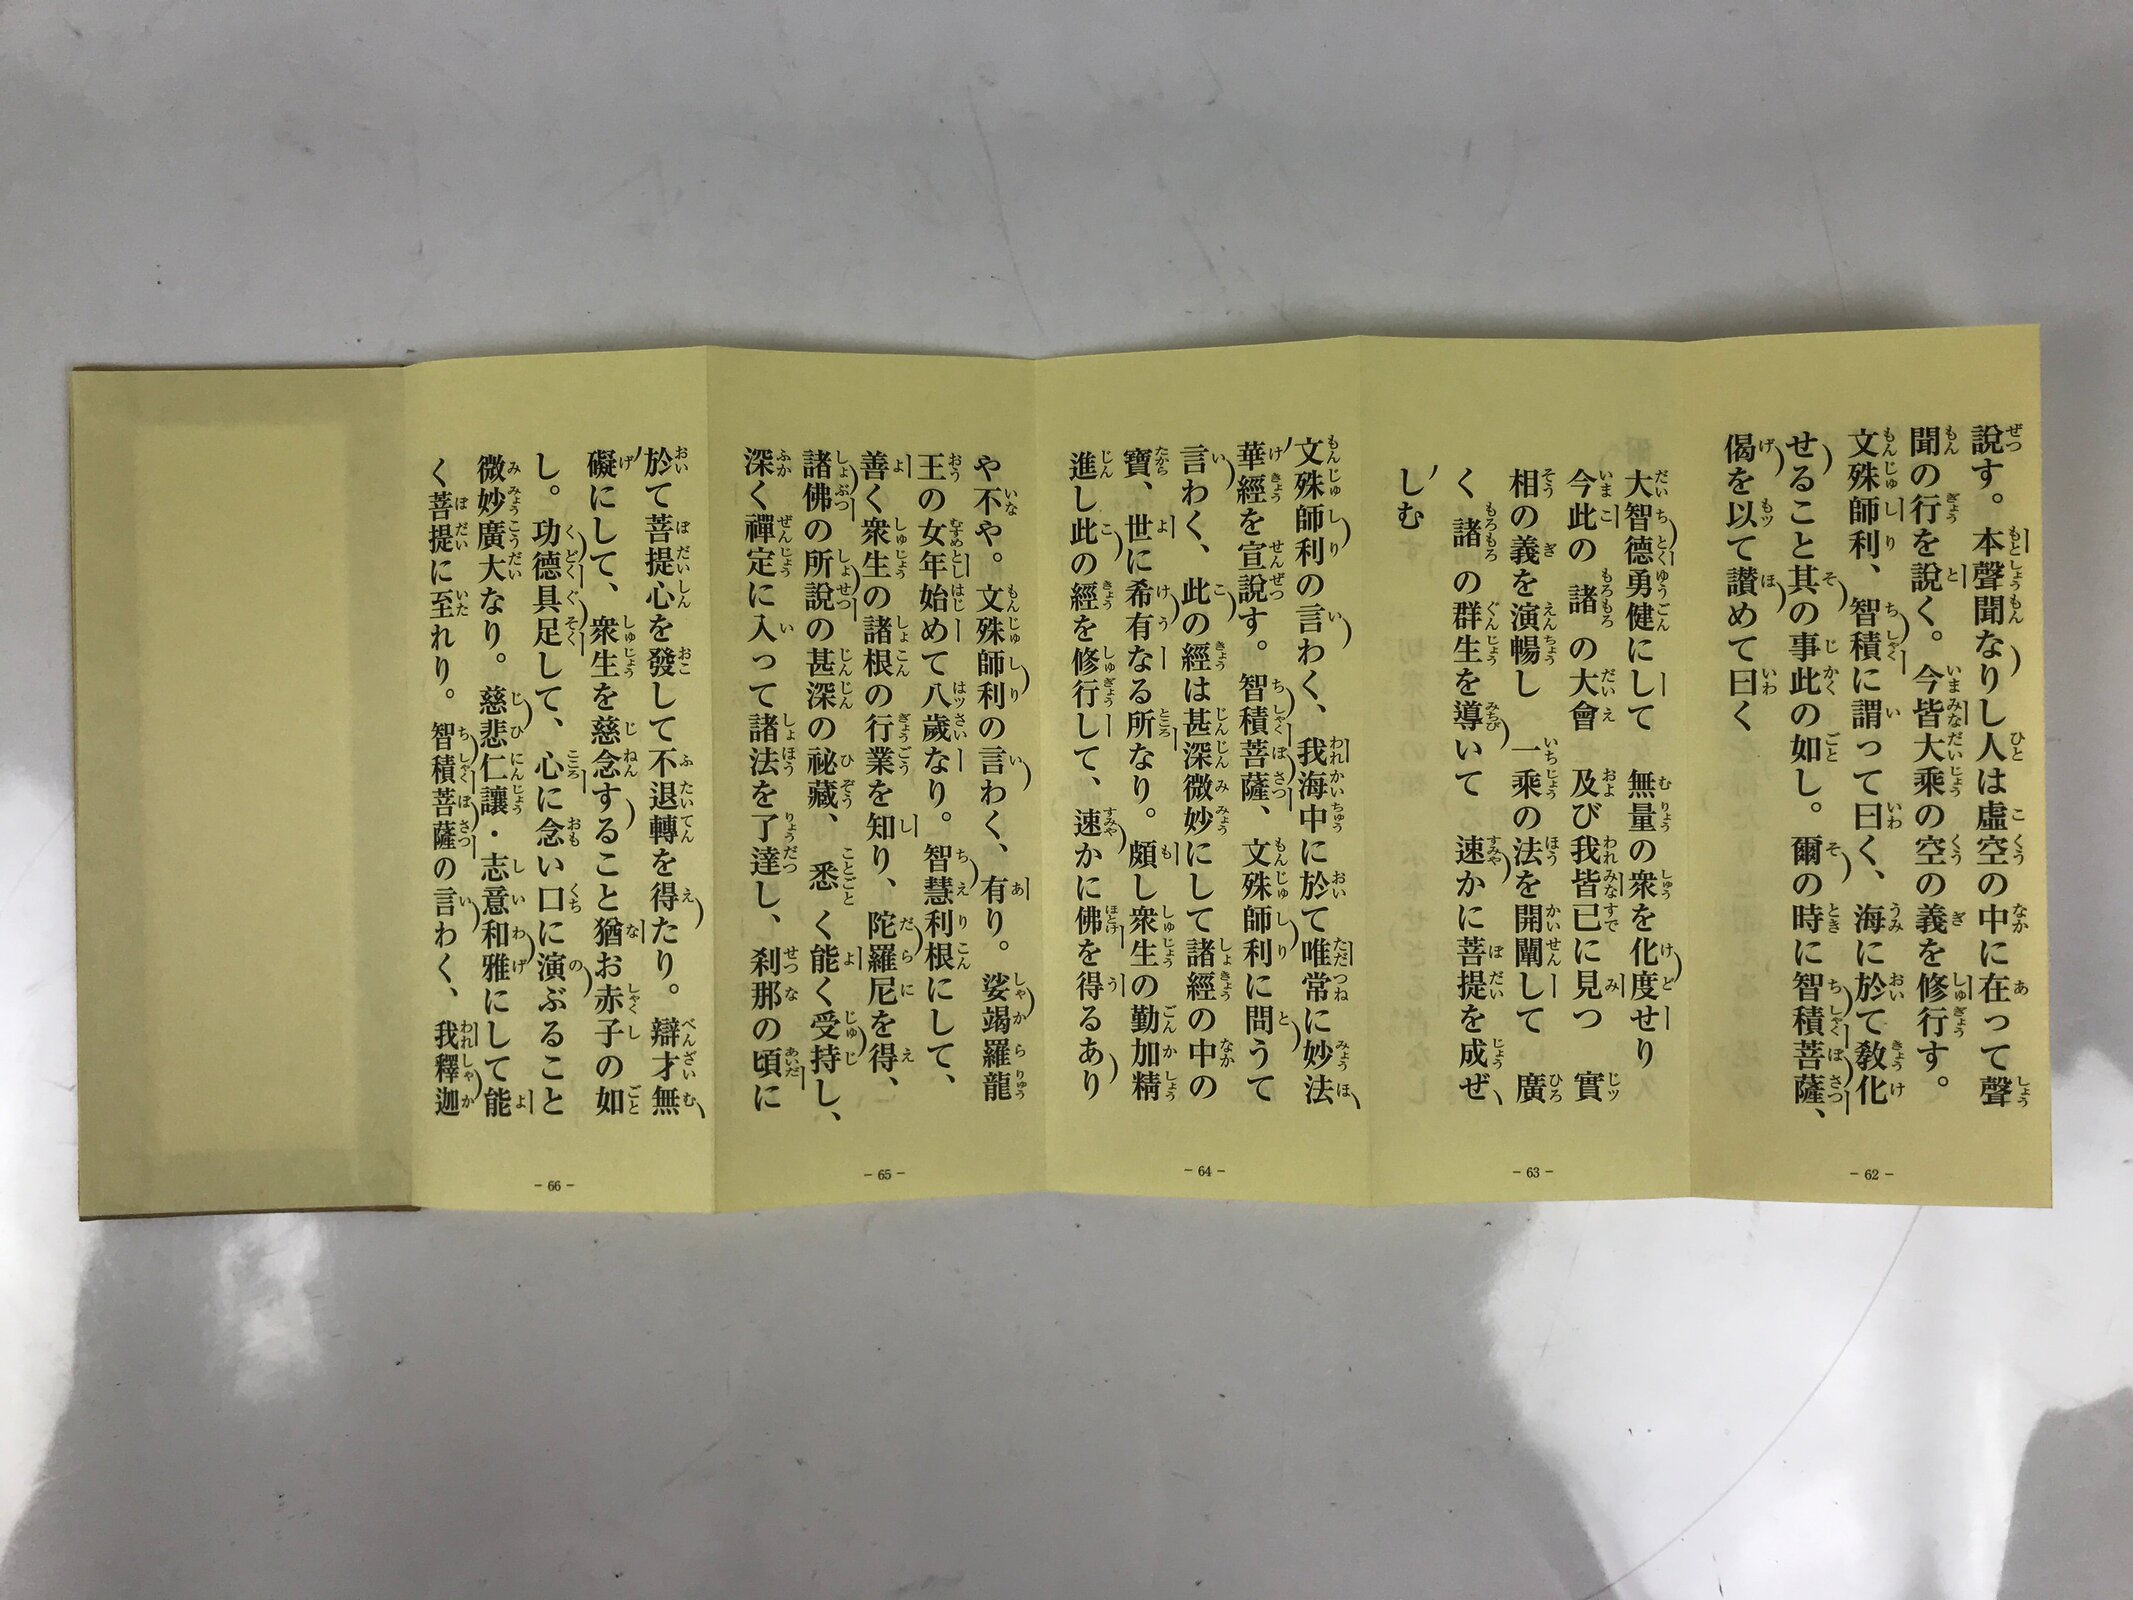 說す。本聲聞なりし人は虛空の中に在って聲
聞の行を說く。今皆大乘の空の義を修行す。
文殊師利、智積に謂って曰く、海に於て教化
せること其の事此の如し。爾の時に智積菩薩、
偈を以て讃めて曰く
- 62 -
大智德勇健にして 無量の衆を化度せり
今此の諸の大會 及び我皆已に見つ 實
相の義を演暢し 一乘の法を開闡して 廣
く諸の群生を導いて 速かに菩提を成ぜ
しむ
- 63 -
文殊師利の言わく、我海中に於て唯常に妙法
華經を宣說す。智積菩薩、文殊師利に問うて
言わく、此の經は甚深微妙にして諸經の中の
寶、世に希有なる所なり。頗し衆生の勤加精
進し此の經を修行して、速かに佛を得るあり
- 64 -
や不や。文殊師利の言わく、有り。娑竭羅龍
王の女年始めて八歲なり。智慧利根にして、
善く衆生の諸根の行業を知り、陀羅尼を得、
諸佛の所說の甚深の祕藏、悉く能く受持し、
深く禪定に入って諸法を了達し、刹那の頃に
- 65 -
於て菩提心を發して不退轉を得たり。辯才無
礙にして、衆生を慈念すること猶お赤子の如
し。功德具足して、心に念い口に演ぶること
微妙廣大なり。慈悲仁讓・志意和雅にして能
く菩提に至れり。智積菩薩の言わく、我釋迦
- 66 -